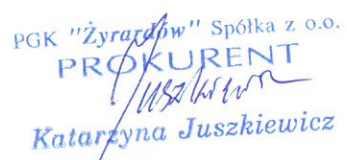 PGK "Żyrardów" Spółka z o.o.
PROKURENT
Juszkiewicz
Katarzyna Juszkiewicz